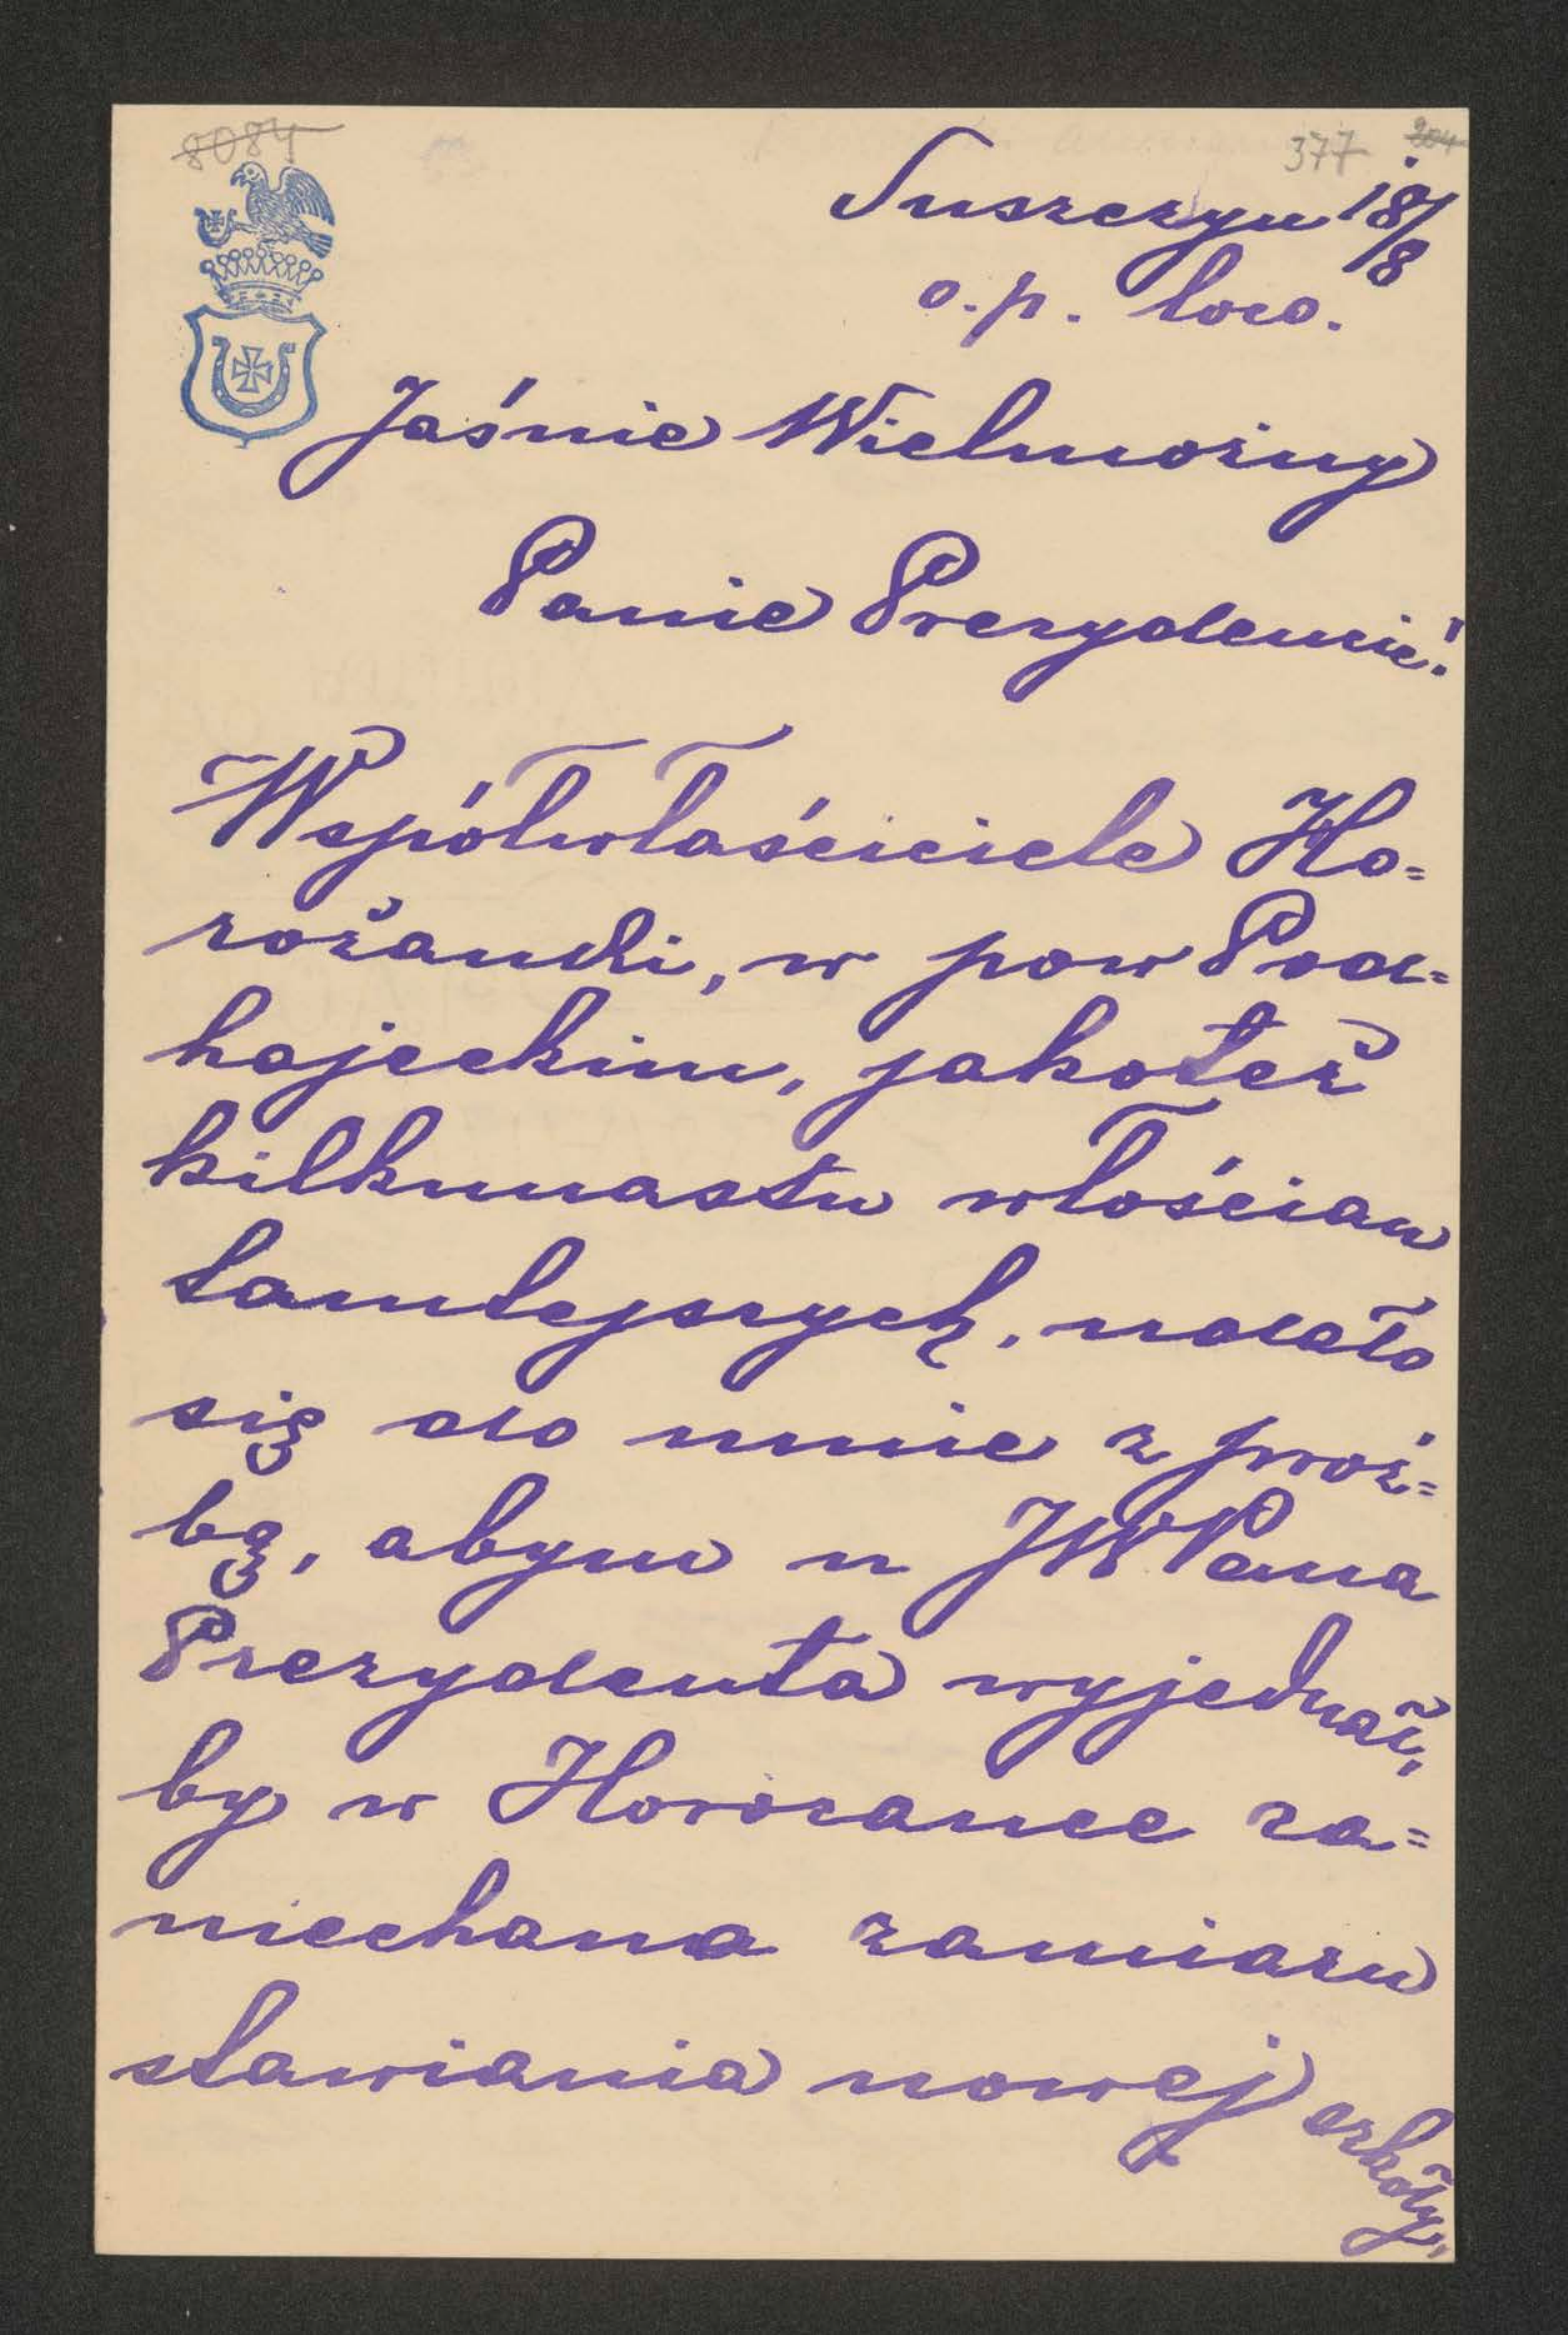 8084
377 204
Suszczyn 18/8
o.p. loco.
Jaśnie Wielmożny
Panie Prezydencie!
Współwłaściciele Ho=
rożanki, w pow Pod=
hajeckim, jakoteż
kilkunastu włościan
tamtejszych, udało
się do mnie z proź=
bą, abym u JWPana
Prezydenta wyjednał,
by w Horożance za=
niechano zamiaru
stawiania nowej szkoły,